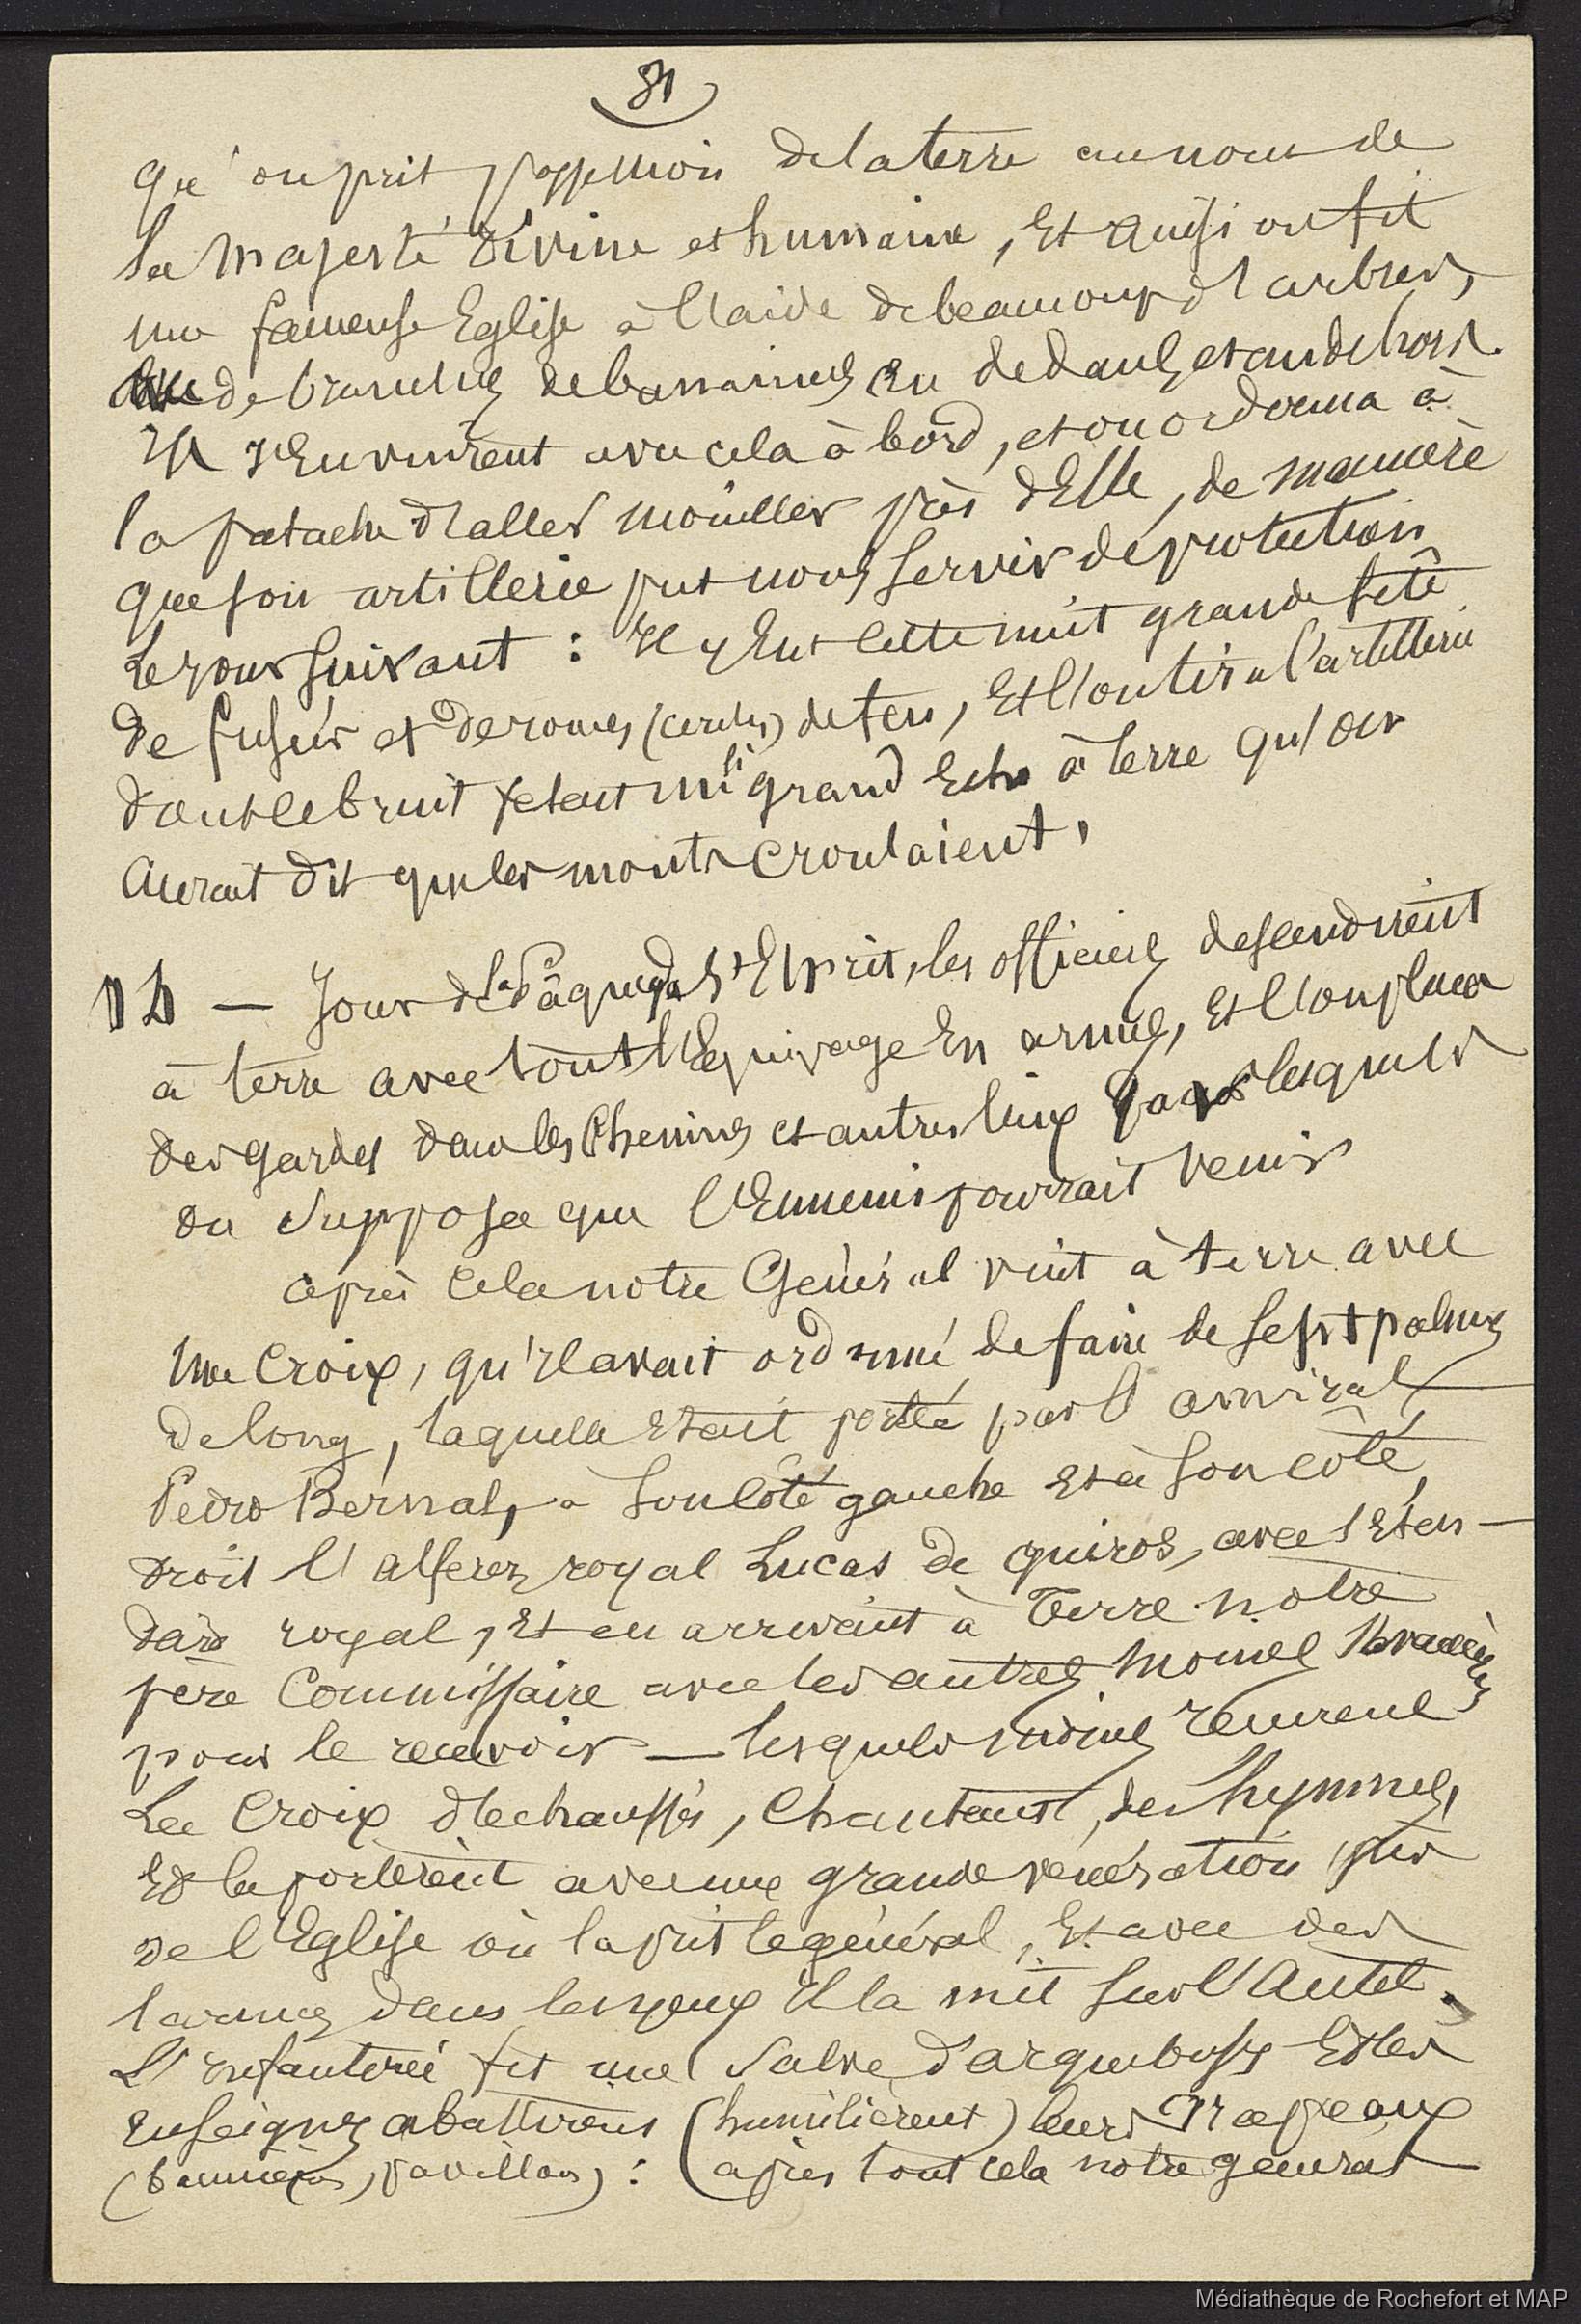 81
qu'on prit possession de la terre au nom de
Sa Majesté divine et humaine, Et ainsi on fit
une fameuse Eglise à l'aide de beaucoup d'arbres,
de branches de bananiers en dedans et en dehors.
Ils s'en vinrent avec cela à bord, et on ordonna à
la patache d'aller mouiller près d'Elle, de manière
que son artillerie put nous servir de protection
Le jour suivant : Il y eut cette nuit grande fête
de fusées et de roues (cercles) de feu, Et l'on tira l'artillerie
dont le bruit fesait un si grand Echo à terre qu'on
aurait dit que les monts croulaient,
14 — Jour de la Pâque du St Esprit, les officiers descendirent
à terre avec tout l'Equipage En armes, et l'on plaça
des gardes dans les Chemins et autres lieux par lesquels
on supposa que l'Ennemi pourrait venir
après cela notre Général vint à terre avec
une Croix, qu'il avait ordonné de faire de sept palmes
de long, laquelle était portée par l'amiral
Pedro Bernal, à son côté gauche et à son côté
droit l'alferez royal Lucas de Quiros, avec l'Eten-
dard royal, et en arrivant à Terre notre
père Commissaire avec les autres moines
pour le recevoir — lesquels moines reçurent
La Croix déchaussés, Chantant, des hymnes,
Et la portèrent avec une grande vénération près
de l'Eglise où la prit le général, Et avec des
larmes dans les yeux Il la mit sur l'Autel.
L'infanterie fit une salve d'arquebuses Et les
Enseignes abattirent (humilièrent) leurs Drapeaux
(bannières, pavillons) : (après tout cela notre général
Médiathèque de Rochefort et MAP